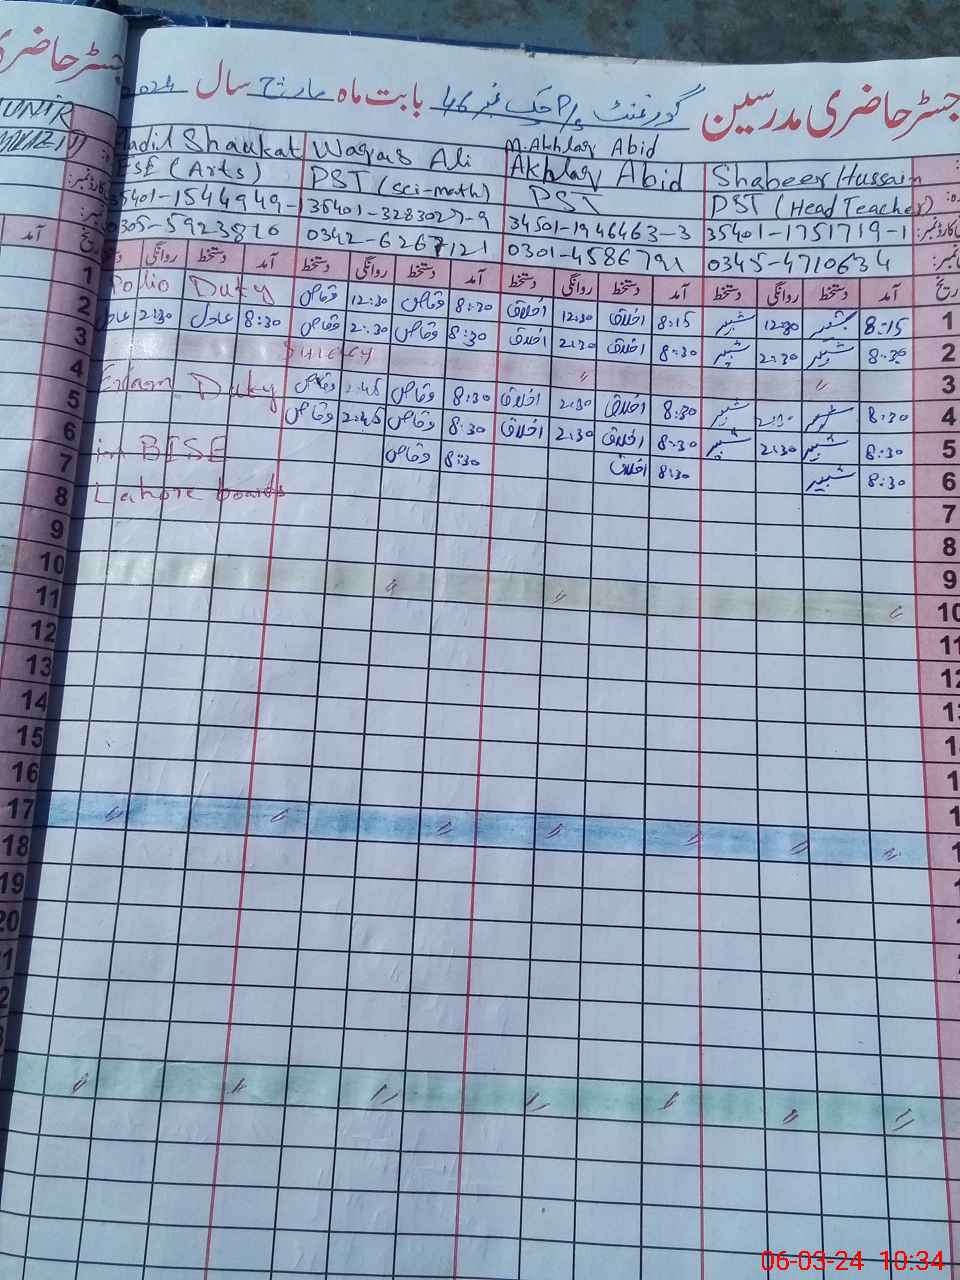 رجسٹر حاضری مدرسین گورنمنٹ P/s چک نمبر 46 بابت ماہ مارچ سال 2024
جسٹر حاضری
MUNIR
Aadil Shaukat Waqas Ali M. Akhlaq Abid
Akhlaq Abid Shabeer Hussain
ESE (Arts) PST (Sci-math) PST PST (Head Teacher)
35401-1544949- 35401-3283027-9 34501-1946463-3 35401-1751719-1
0305-5923816 0342-6267121 0301-4586791 0345-4710634
تاریخ آمد دستخط روانگی دستخط آمد دستخط روانگی دستخط آمد دستخط روانگی دستخط آمد دستخط روانگی تاریخ
آمد
1 8:15 شبیر 12:30 شبیر 8:15 اخلاق 12:30 اخلاق 8:30 وقاص 12:30 وقاص Pollio Duty 1
2 8:30 شبیر 2:30 شبیر 8:30 اخلاق 2:30 اخلاق 8:30 وقاص 2:30 وقاص 8:30 عادل 2:30 عادل 2
3 〃 〃 Sunday 3
4 8:30 شبیر 2:30 شبیر 8:30 اخلاق 2:30 اخلاق 8:30 وقاص 2:45 وقاص Exam Duty 4
5 8:30 شبیر 2:30 شبیر 8:30 اخلاق 2:30 اخلاق 8:30 وقاص 2:45 وقاص 5
6 8:30 شبیر 8:30 اخلاق 8:30 وقاص in BISE 6
7 Lahore board 7
8 8
9 9
10 〃 〃 〃 10
11 11
12 12
13
14
15
16
17 〃 〃 〃 〃 〃 〃 〃
18
19
20
〃 〃 〃 〃 〃 〃 〃
06-03-24 10:34